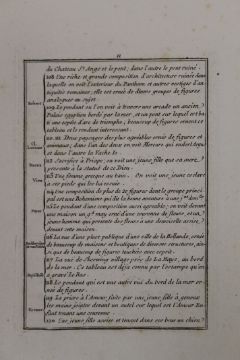 11
du Chateau St. Ange et le pont; dans l'autre le pont ruiné.
108 Une riche et grande composition d'architecture ruinée dans
laquelle on voit l'interieur du Pantheon et autres vestiges d'an
tiquités romaines; elle est ornée de divers groupes de figures
analogues au sujet
Robert
109 Le pendant ou l'on voit à travers une arcade un ancien
Palais egyptien bordé par la mer, et un pont sur lequel est ba
ti une espèce d'arc de triomphe, beaucoup de figures ornent ce
tableau et le rendent interessant.
110. 111 Deux paysages des plus agréables ornés de figures et
animaux, dans l'un des deux on voit Mercure qui endort Argus
et dans l'autre la Vache Io
Sacrifice à Priape; on voit une jeune fille que sa mere
presente à la statue de ce Dieu
Vien
113 Une femme grecque au bain. On voit une jeune esclave
à ses pieds qui lui les essuie
114 Une composition de plus de 20 figures dont le groupe princi
pal est une Bohemienne qui dit la bonne aventure
115 Le pendant d'une composition aussi agréable; on voit devant
une maison un
jeune homme qui presente des fleurs à une demoiselle assise
devant cette maison
116 La vue d'une place publique d'une ville de la Hollande, ornée
de beaucoup de maisons et boutiques de diverses structures, ain-
si que de beaucoup de figures touchées avec esprit.
117 La vue de Chevening village près de La Haye, au bord
de la mer. Ce tableau est deja connu par l'estampe qu'en
a gravé Le Bas.
118 Le pendant qui est une autre vue du bord de la mer or
née de figures.
119 La priere à l'Amour faite par une jeune fille à genoux
les mains jointes devant un autel sur lequel est l'Amour En-
fant tenant une couronne
120 Une jeune fille assise et tenant dans ses bras un chien